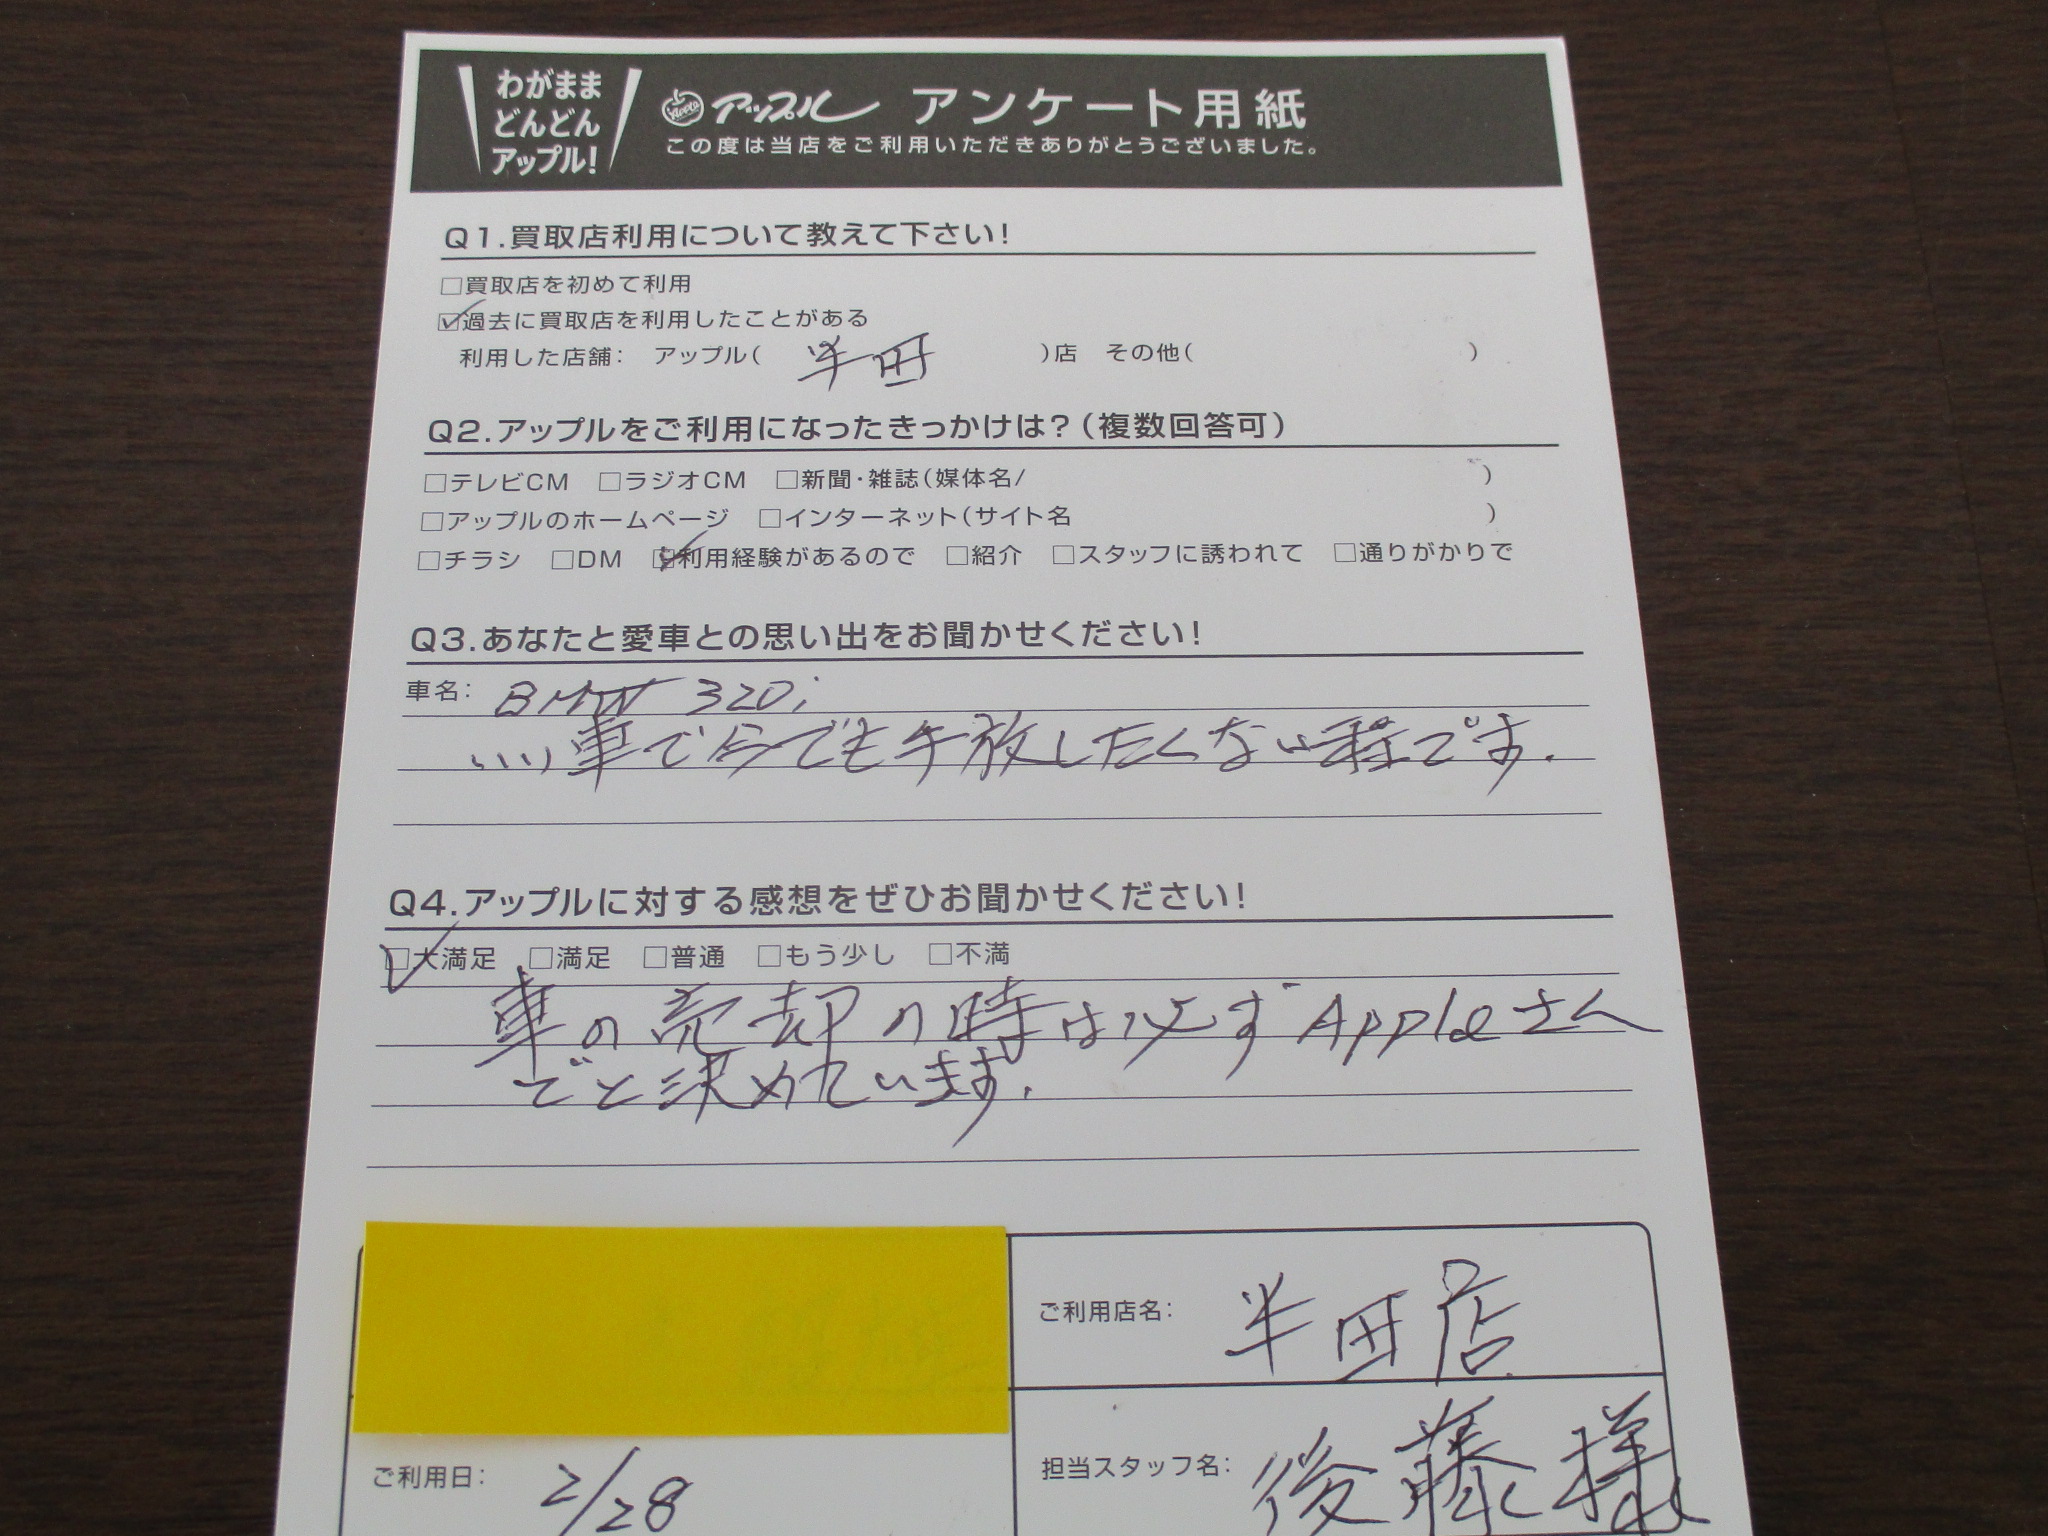 わがまま
どんどん
アップル!
Apple アップル アンケート用紙
この度は当店をご利用いただきありがとうございました。
Q1.買取店利用について教えて下さい!
□買取店を初めて利用
☑過去に買取店を利用したことがある
利用した店舗: アップル( 半田 )店 その他( )
Q2.アップルをご利用になったきっかけは?(複数回答可)
□テレビCM □ラジオCM □新聞・雑誌(媒体名/ )
□アップルのホームページ □インターネット(サイト名 )
□チラシ □DM ☑利用経験があるので □紹介 □スタッフに誘われて □通りがかりで
Q3.あなたと愛車との思い出をお聞かせください!
車名: BMW 320i
いい車で今でも手放したくない程です.
Q4.アップルに対する感想をぜひお聞かせください!
☑大満足 □満足 □普通 □もう少し □不満
車の売却の時は必ずAppleさん
でと決めています.
ご利用店名: 半田店
ご利用日: 2/28
担当スタッフ名: 後藤様